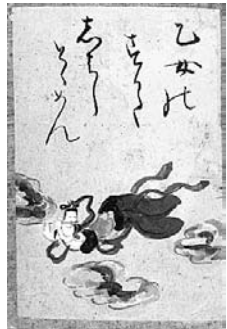 乙女の
すかた
志はし
とゝめん